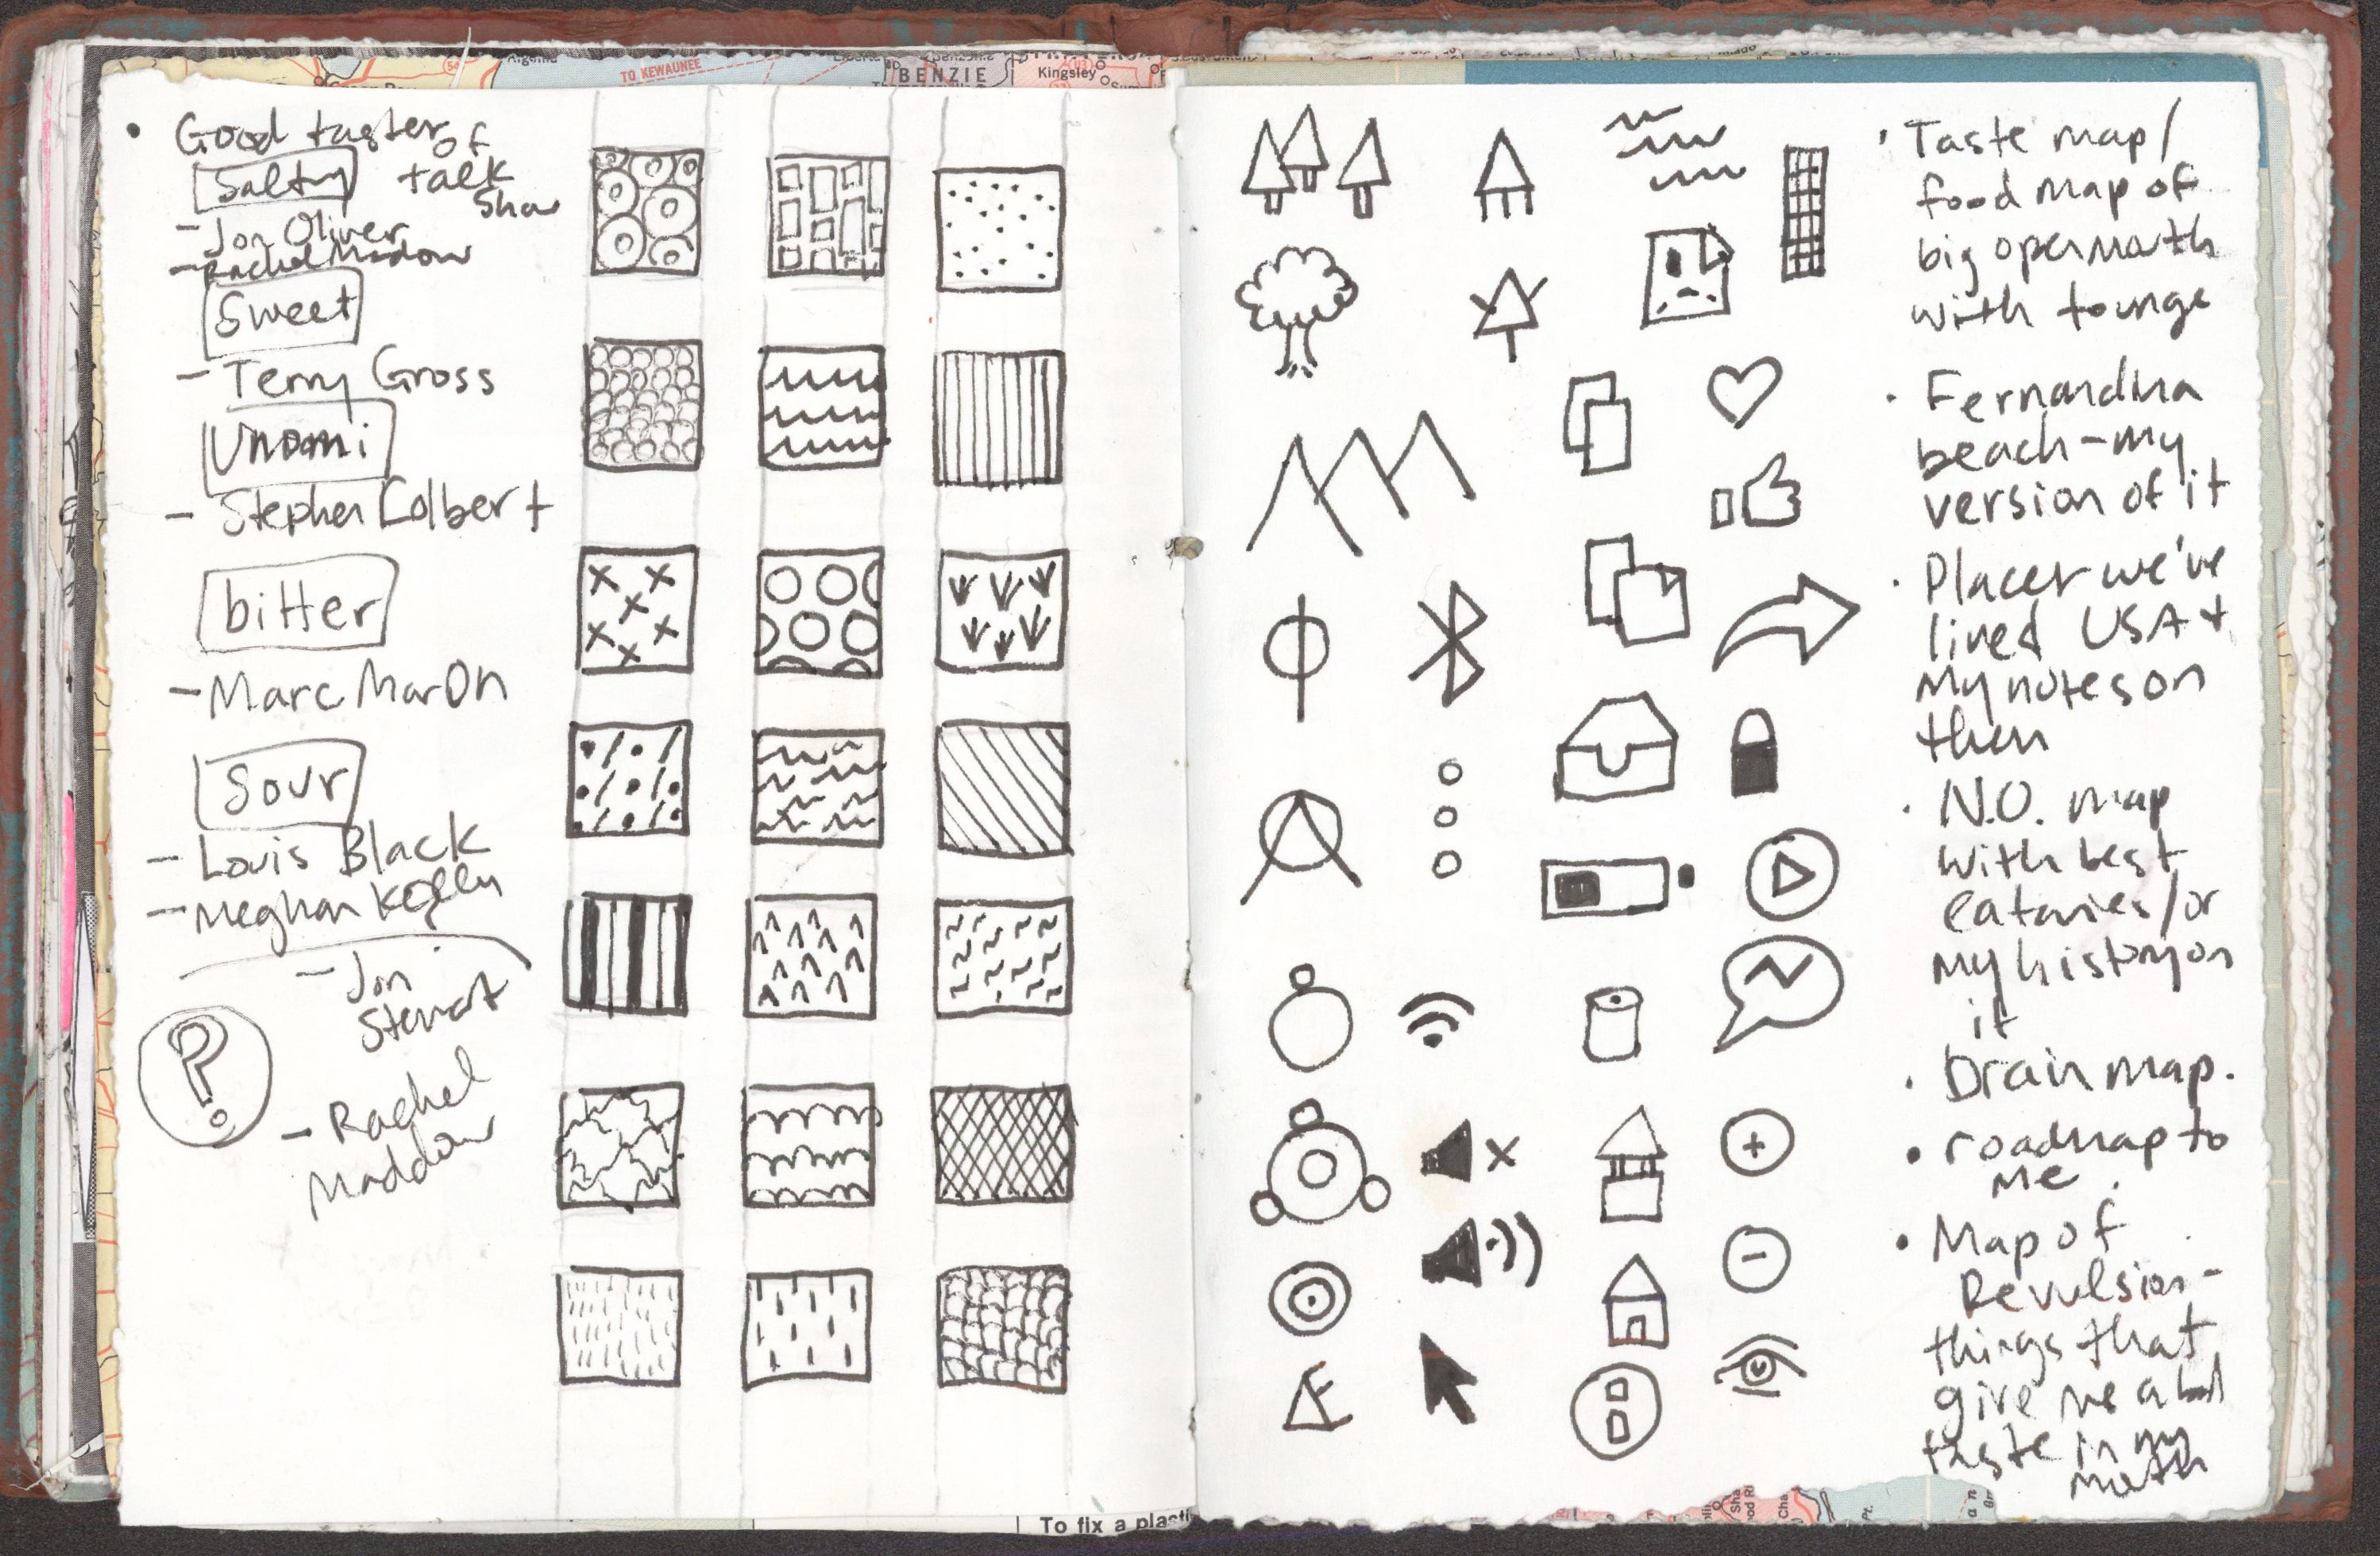 TO KEWAUNEE
BENZIE
Kingsley
• Good tastes
of
Salty talk
Show
- Jon Oliver
- Rachel Madow
Sweet
- Terry Gross
Unami
- Stephen Colbert
bitter
- Marc MarOn
Sour
- Louis Black
- Meghan Kelly
- Jon
Stewart
?
- Rachel
Maddow
To fix a plasti
• Taste map/
food map of
big open math
with tounge
• Fernandina
beach - my
version of it
• Places we've
lived USA +
My notes on
them
• N.O. map
with best
eataries/or
my history on
it
• Brain map.
• roadmap to
me.
• Map of
Revulsion -
things that
give me a bad
taste in my
math